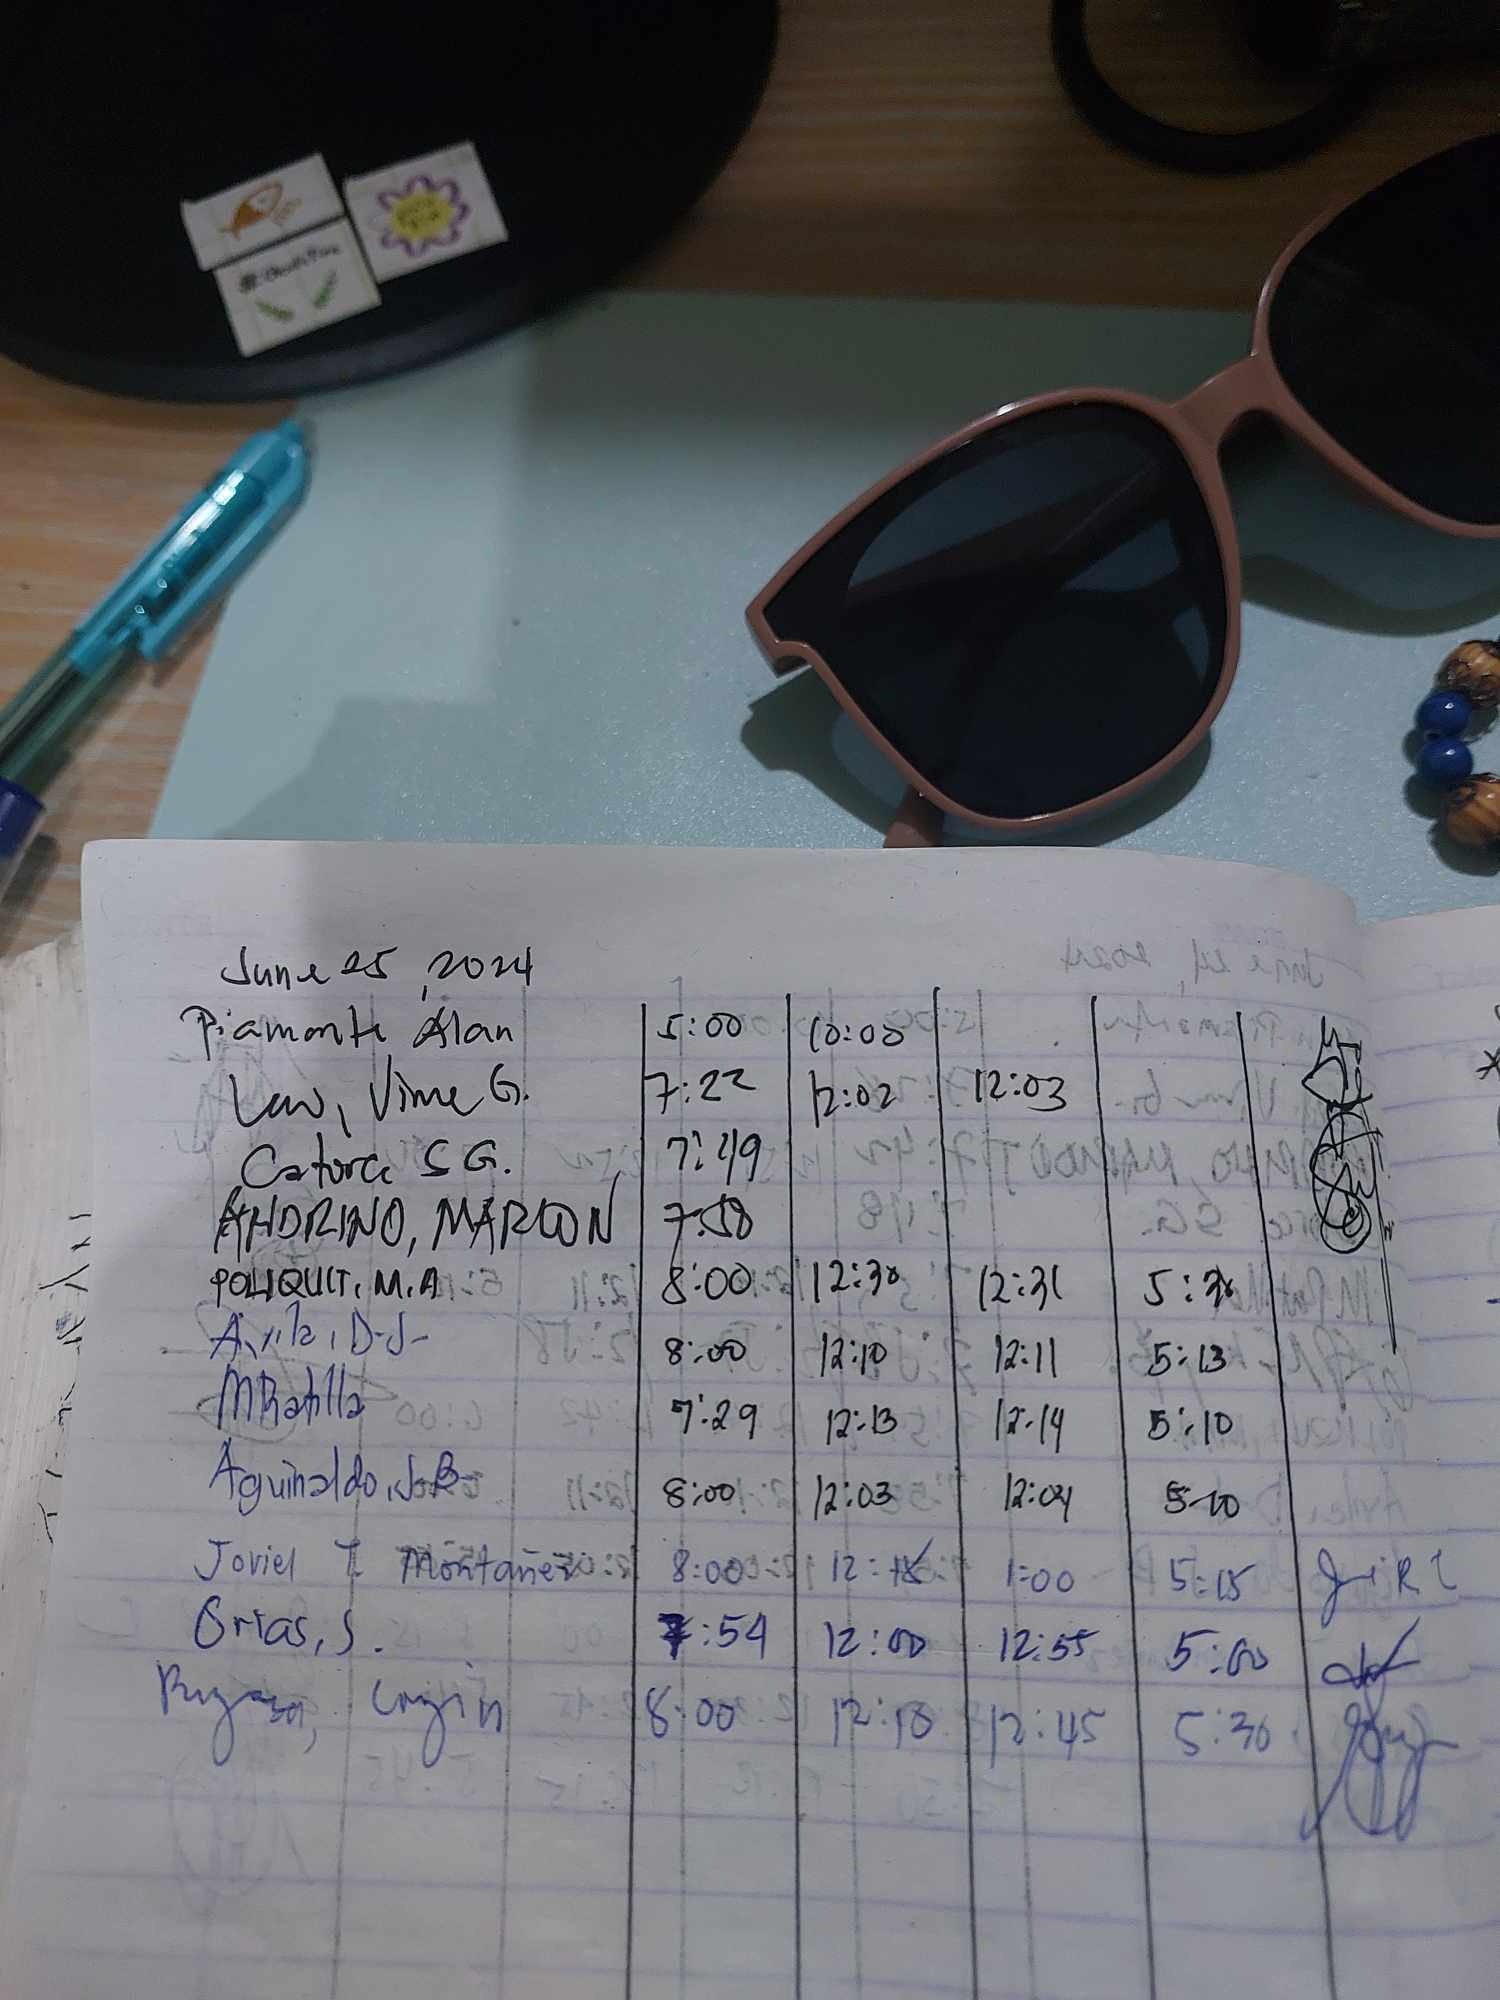 June 25, 2024
Piamonte Alan 5:00 10:00
Law, Vime G. 7:22 12:02 12:03
Catorce S G. 7:49
ANDRINO, MARLON 7:58
POLIQUIT, M.A 8:00 12:30 12:31 5:30
D.J. 8:00 12:10 12:11 5:13
7:29 12:13 12:14 5:10
Aguinaldo, J.B. 8:00 12:03 12:04 5:10
Joviel T. Montañez 8:00 12: 1:00 5:15
Orias, S. 7:54 12:00 12:55 5:00
8:00 12:10 12:45 5:30